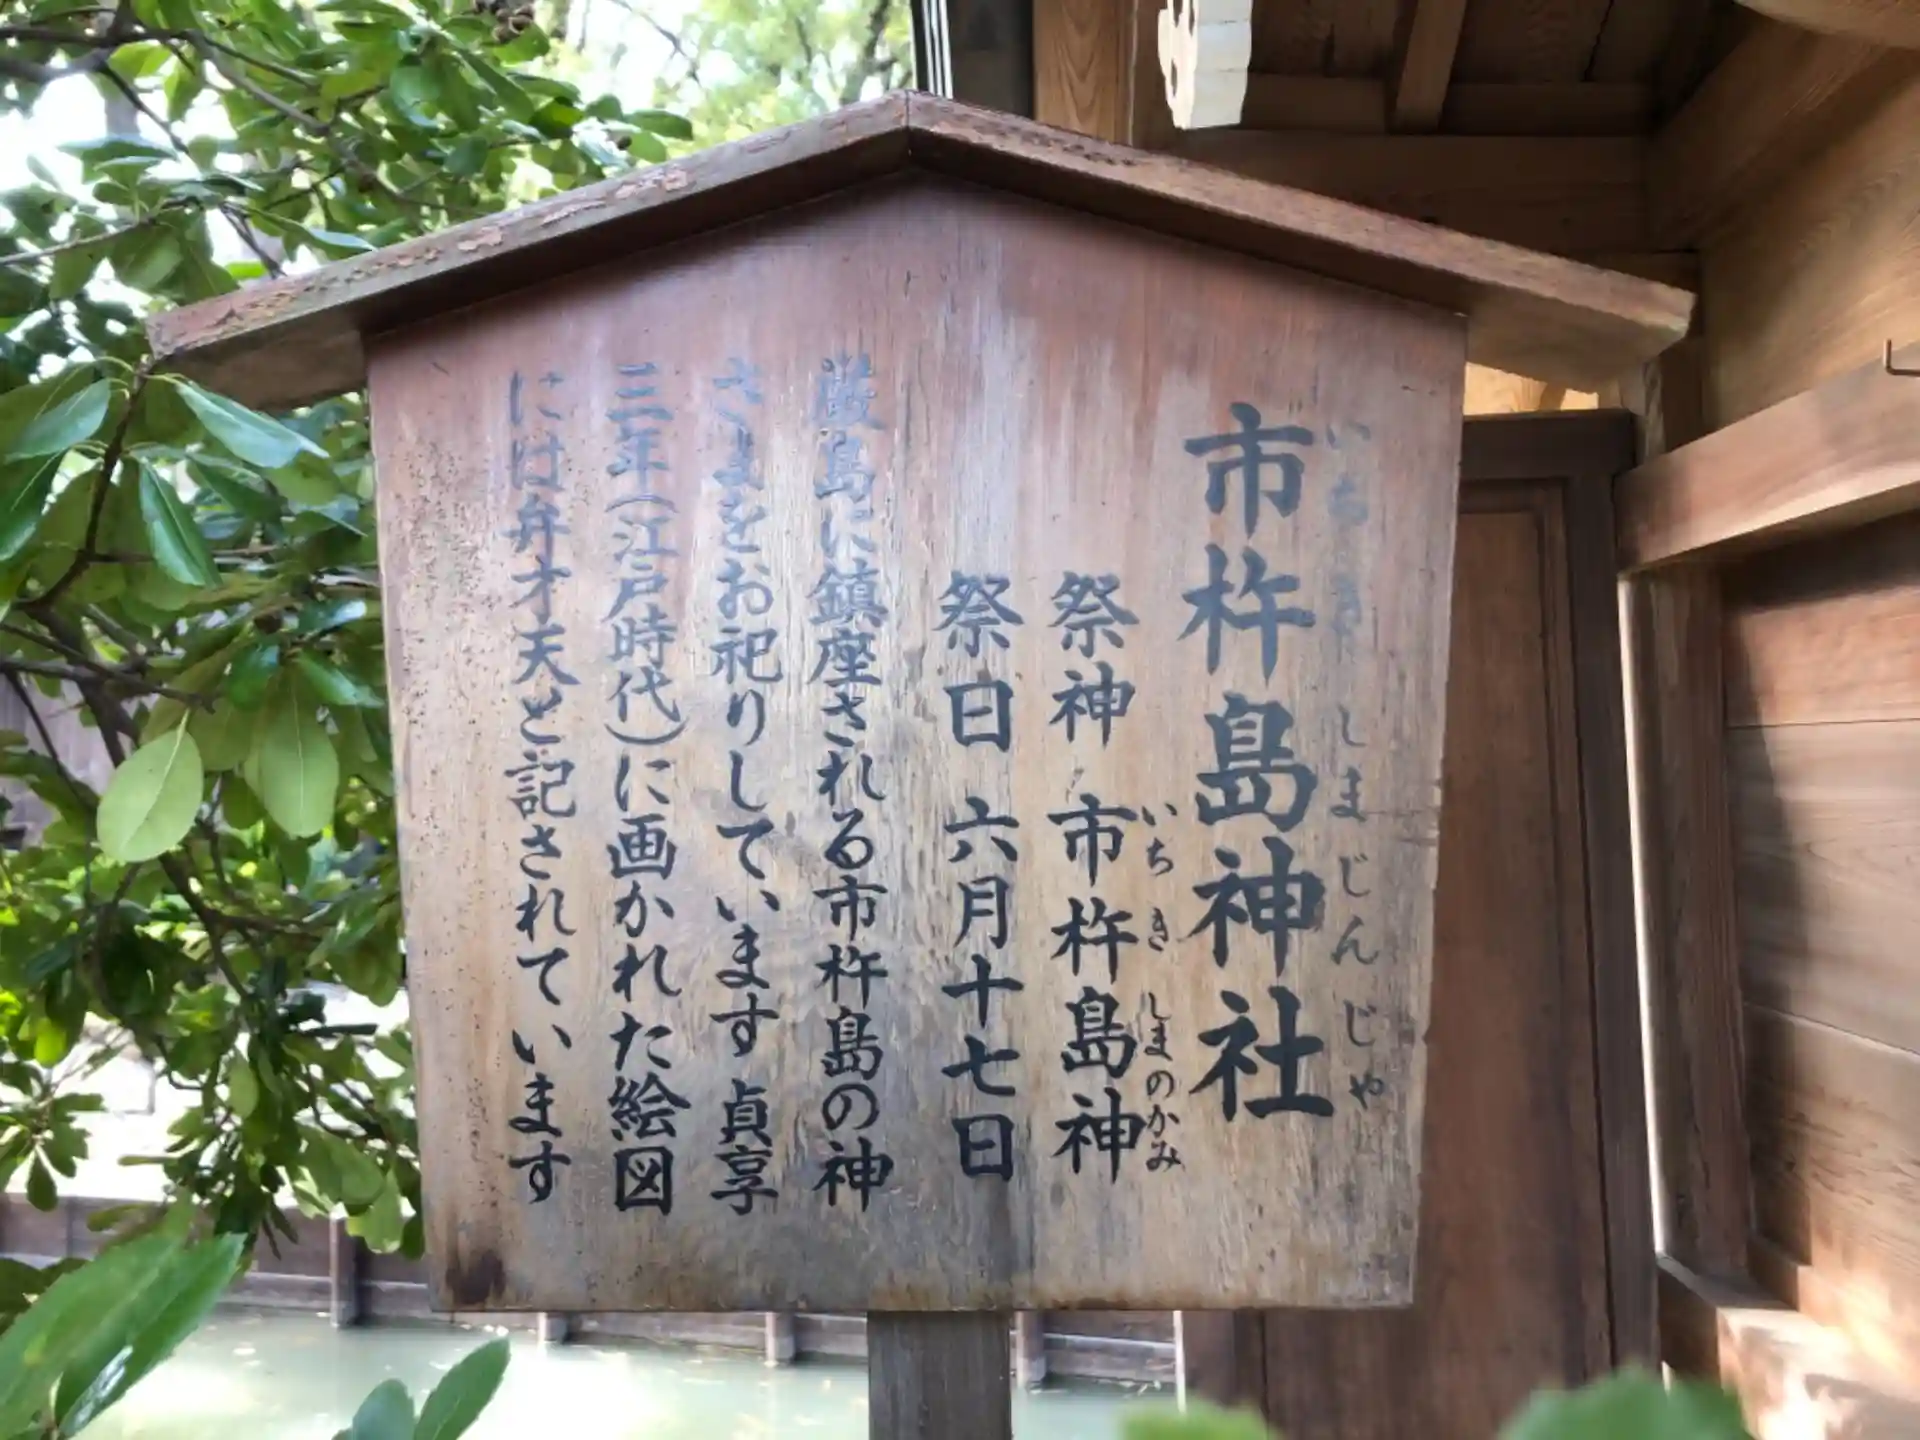 市杵島神社
いちきしまじんじゃ
祭神 市杵島神
いちきしまのかみ
祭日 六月十七日
厳島に鎮座される市杵島の神
さまをお祀りしています貞享
三年(江戸時代)に画かれた絵図
には弁才天と記されています